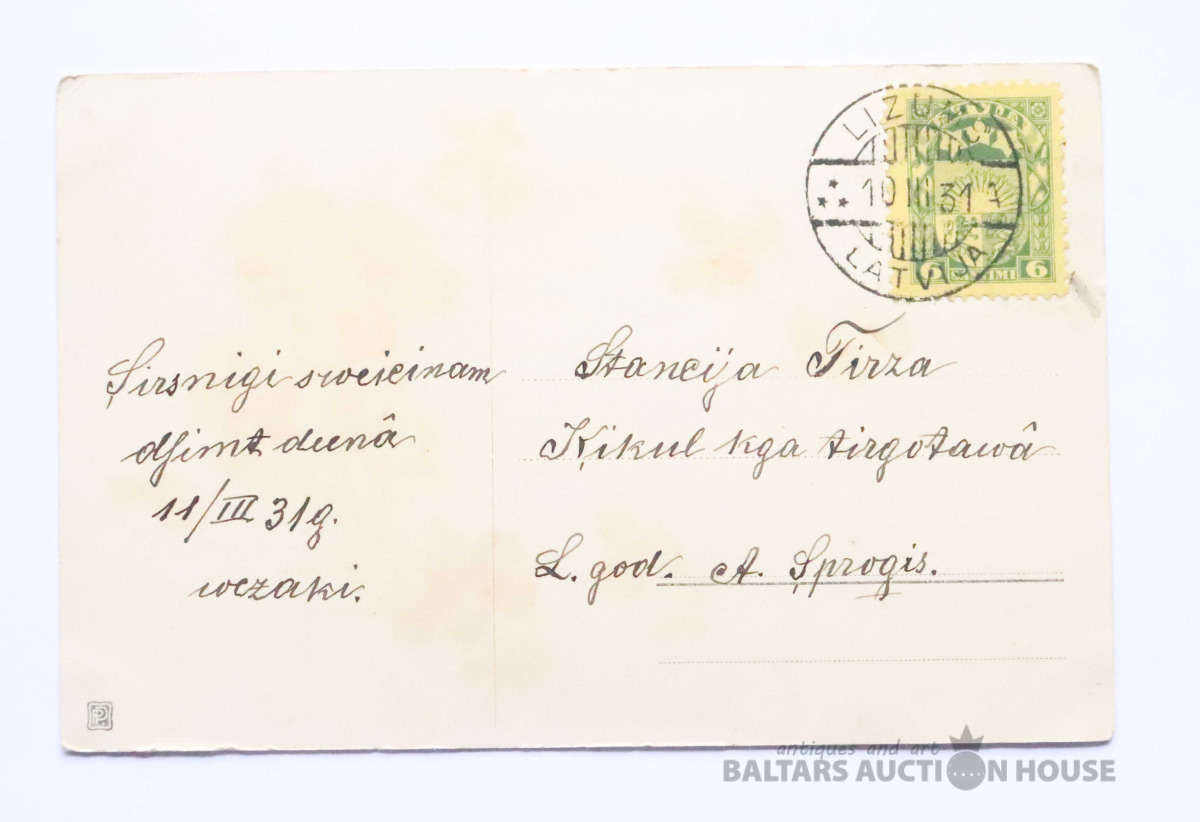 LIZUMS
10 III 31 1
LATVIJA
LATVIJA
6 6
Şirsnigi sweicinam
dſimt deenâ
11/III 31g.
wezaki.
Stancija Tirza
Ķikul kga tirgotawâ
L. god. A. Şprogis.
antiques and art
BALTARS AUCTION HOUSE